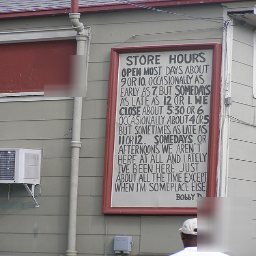 STORE HOURS
OPEN MOST DAYS ABOUT
9 OR 10. OCCASIONALLY AS
EARLY AS 7 BUT SOMEDAYS
AS LATE AS 12 OR 1. WE
CLOSE ABOUT 5:30 OR 6
OCCASIONALLY ABOUT 4 OR 5
BUT SOMETIMES AS LATE AS
11 OR 12. SOMEDAYS OR
AFTERNOONS WE AREN'T
HERE AT ALL AND LATELY
I'VE BEEN HERE JUST
ABOUT ALL THE TIME EXCEPT
WHEN I'M SOMEPLACE ELSE
BOBBY D.